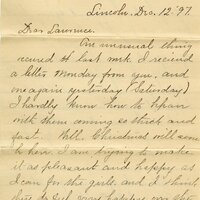 Lincoln, Dec. 12 '97.
Dear Lawrence.
One unusual thing
occured last week. I received
a letter Monday from you, and
one again yesterday (Saturday)
I hardly know how to
with them coming so thick and
fast. Well Christmas will soon
be here. I am trying to make
it as pleasant and happy as
I can for the girls, and I think